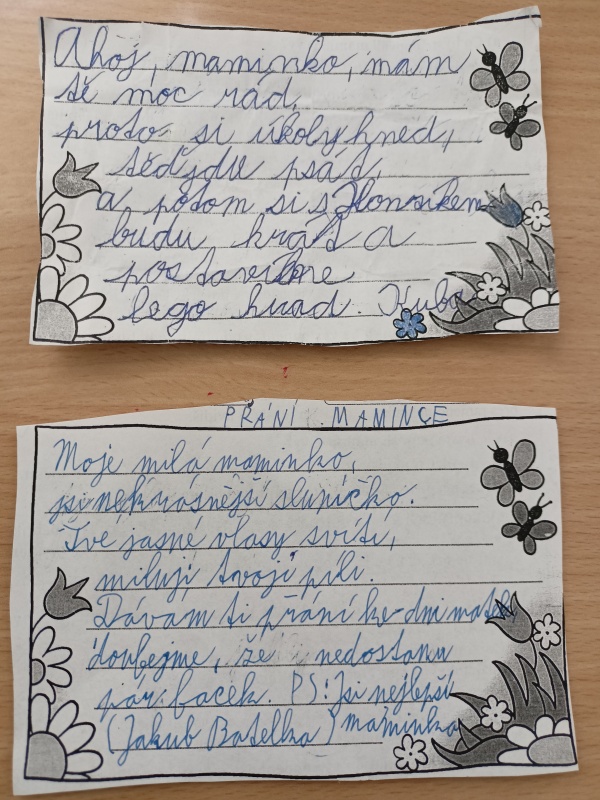 Ahoj, maminko, mám
tě moc rád,
proto si úkoly hned,
teď jdu psát,
a potom si s Honzíkem
budu hrát a
postavíme
lego hrad. Kuba
PŘÁNÍ MAMINCE
Moje milá maminko,
jsi nekrásnější sluníčko.
Tvé jasné vlasy svítí,
miluji tvoji píli.
Dávam ti přání ke dni matek
doufejme, že nedostanu
pár facek. PS: Jsi nejlepší
(Jakub Batelka) maminka